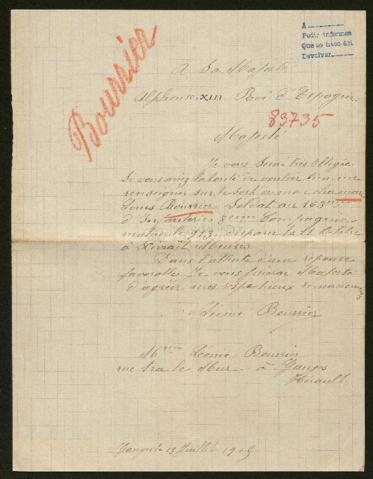 A
Pedir informes
Que se haga así
Devolver
Bourrier
A Sa Majesté
Alphonse XIII Roi d'Espagne
83735
Majesté
Je vous serai très obligée
si vous avez la bonté de vouloir bien me
renseigner sur le sort de mon cher
Louis Bourrier Soldat au 163me
d'Infanterie 9eme Compagnie
matricule disparu le 11 Octobre
à
Dans l'attente d'une réponse
favorable Je vous prierai Majesté
d'agréer mes respectueux remerciements
Léonie Bourrier
Mme Léonie Bourrier
rue à Ganges
Hérault
Ganges le 19 Juillet